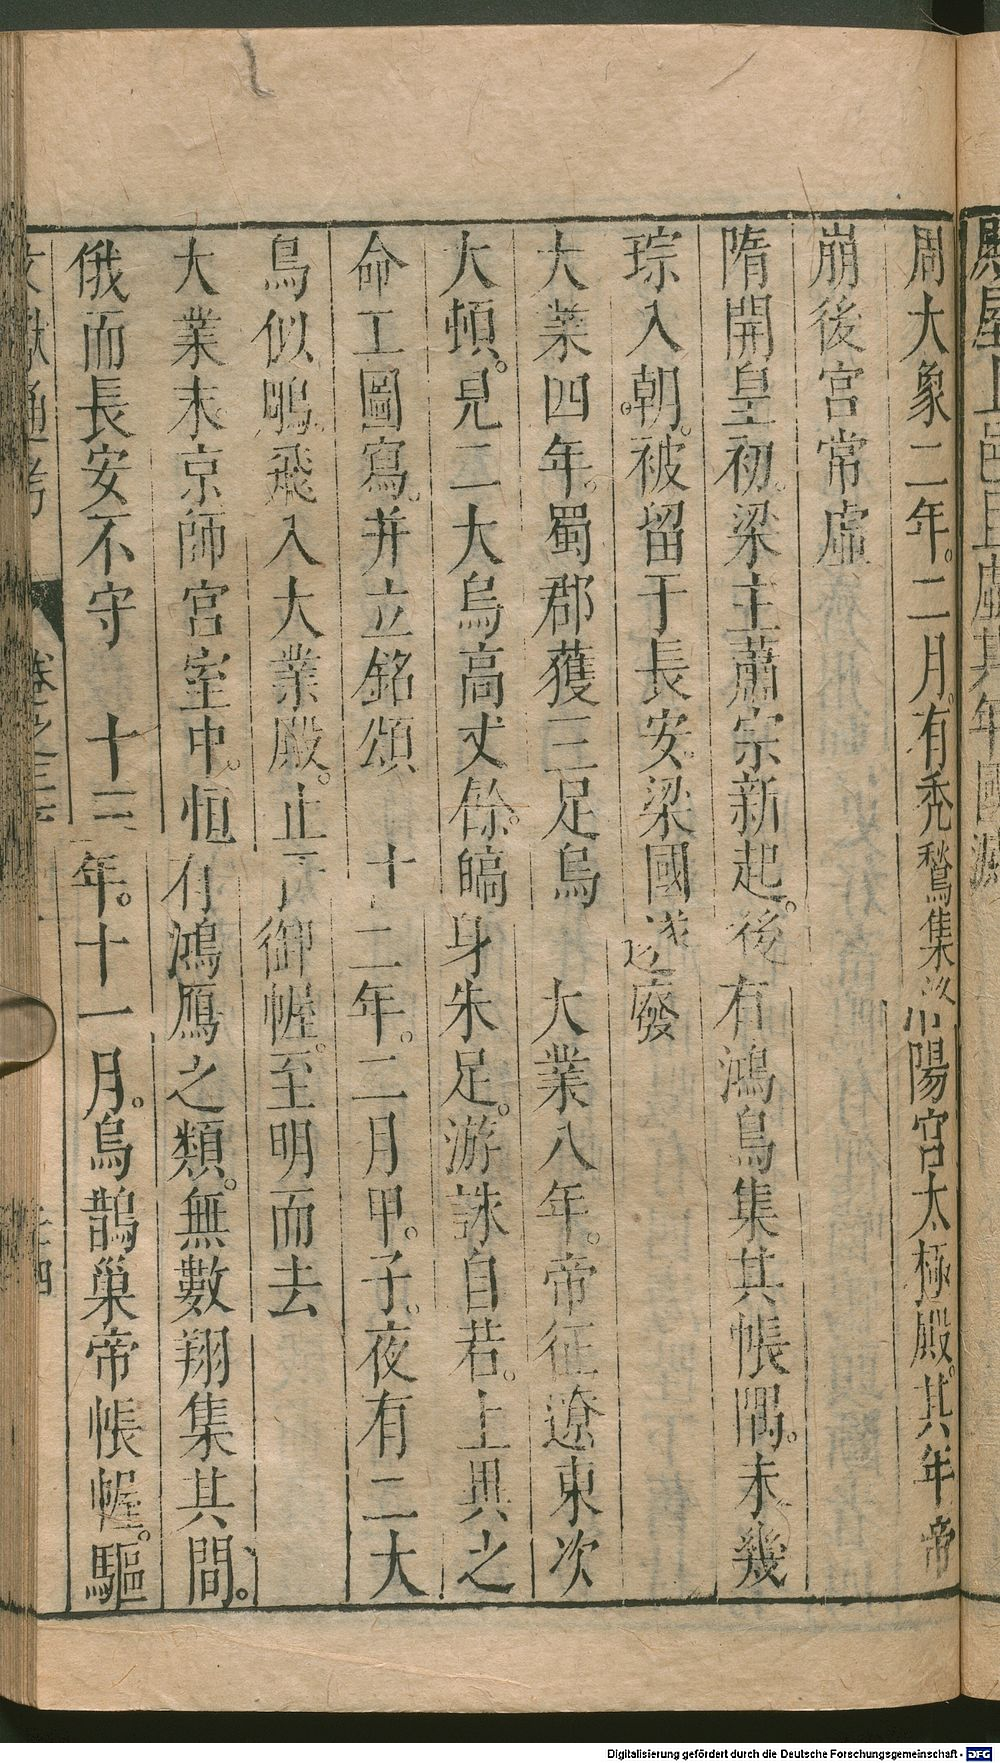 周大象二年。二月。有禿鶖集洛陽宮太極殿。其年帝
崩後宮常虛
隋開皇初。梁主蕭宗新起。後有鴻鳥集其帳隅。未幾
琮入朝。被留于長安。梁國遂廢
大業四年。蜀郡獲三足烏　大業八年。帝征遼東次
大頓。見二大烏高丈餘。皜身朱足。游詠自若。上異之
命工圖寫。并立銘頌　十二年。二月甲。子。夜有二大
鳥似鵰飛入大業殿。止于御幄。至明而去
大業末京師宮室中。恒有鴻鴈之類。無數翔集其間。
俄而長安不守　十三年。十一月。烏鵲巢帝帳幄。驅
文獻通考　卷之三　四
Digitalisierung gefördert durch die Deutsche Forschungsgemeinschaft - DFG